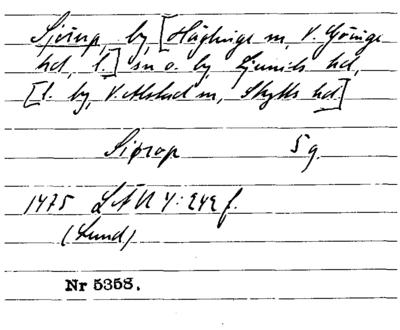 Sjörup, by, [Häglinge sn, V. Göinge
hd, l.] sn o. by, Ljunits hd,
[l. by, V. Alstad sn, Skytts hd.]
Siørop 5 g.
1475 LÄU 4: 242 f.
(Lund)
Nr 5358.